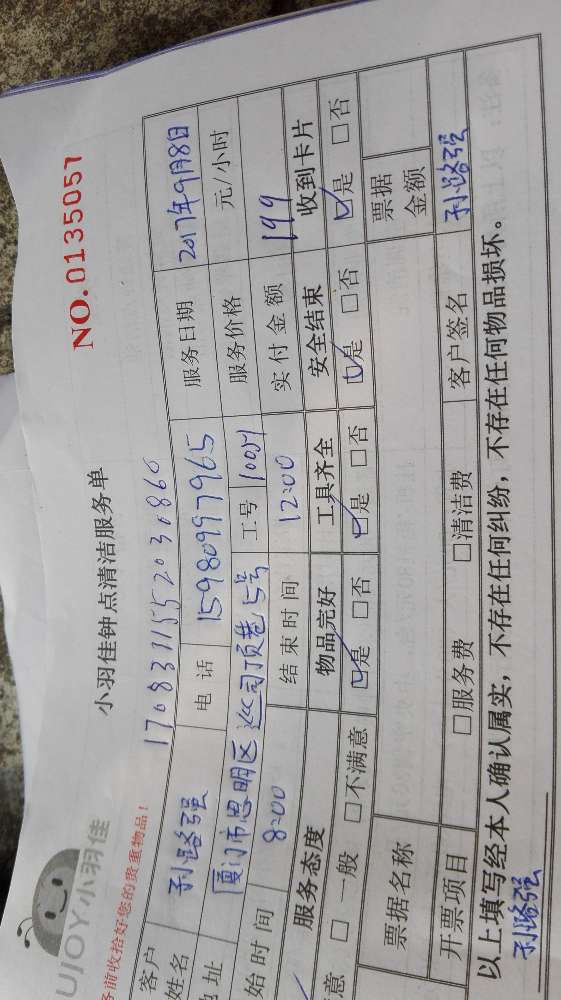 UJOY小羽佳
小羽佳钟点清洁服务单
NO.0135057
务前收拾好您的贵重物品!
1708311552030860
客户姓名 电话 15980997965 服务日期 2017年9月8日
地址 厦门市思明区巡司顶巷5号 工号 服务价格 元/小时
始时间 8:00 结束时间 12:00 实付金额 199
服务态度 物品完好 工具齐全 安全结束 收到卡片
意 □一般 □不满意 ☑是 □否 ☑是 □否 ☑是 □否 ☑是 □否
票据名称 票据金额
开票项目 □服务费 □清洁费 客户签名
以上填写经本人确认属实,不存在任何纠纷,不存在任何物品损坏。